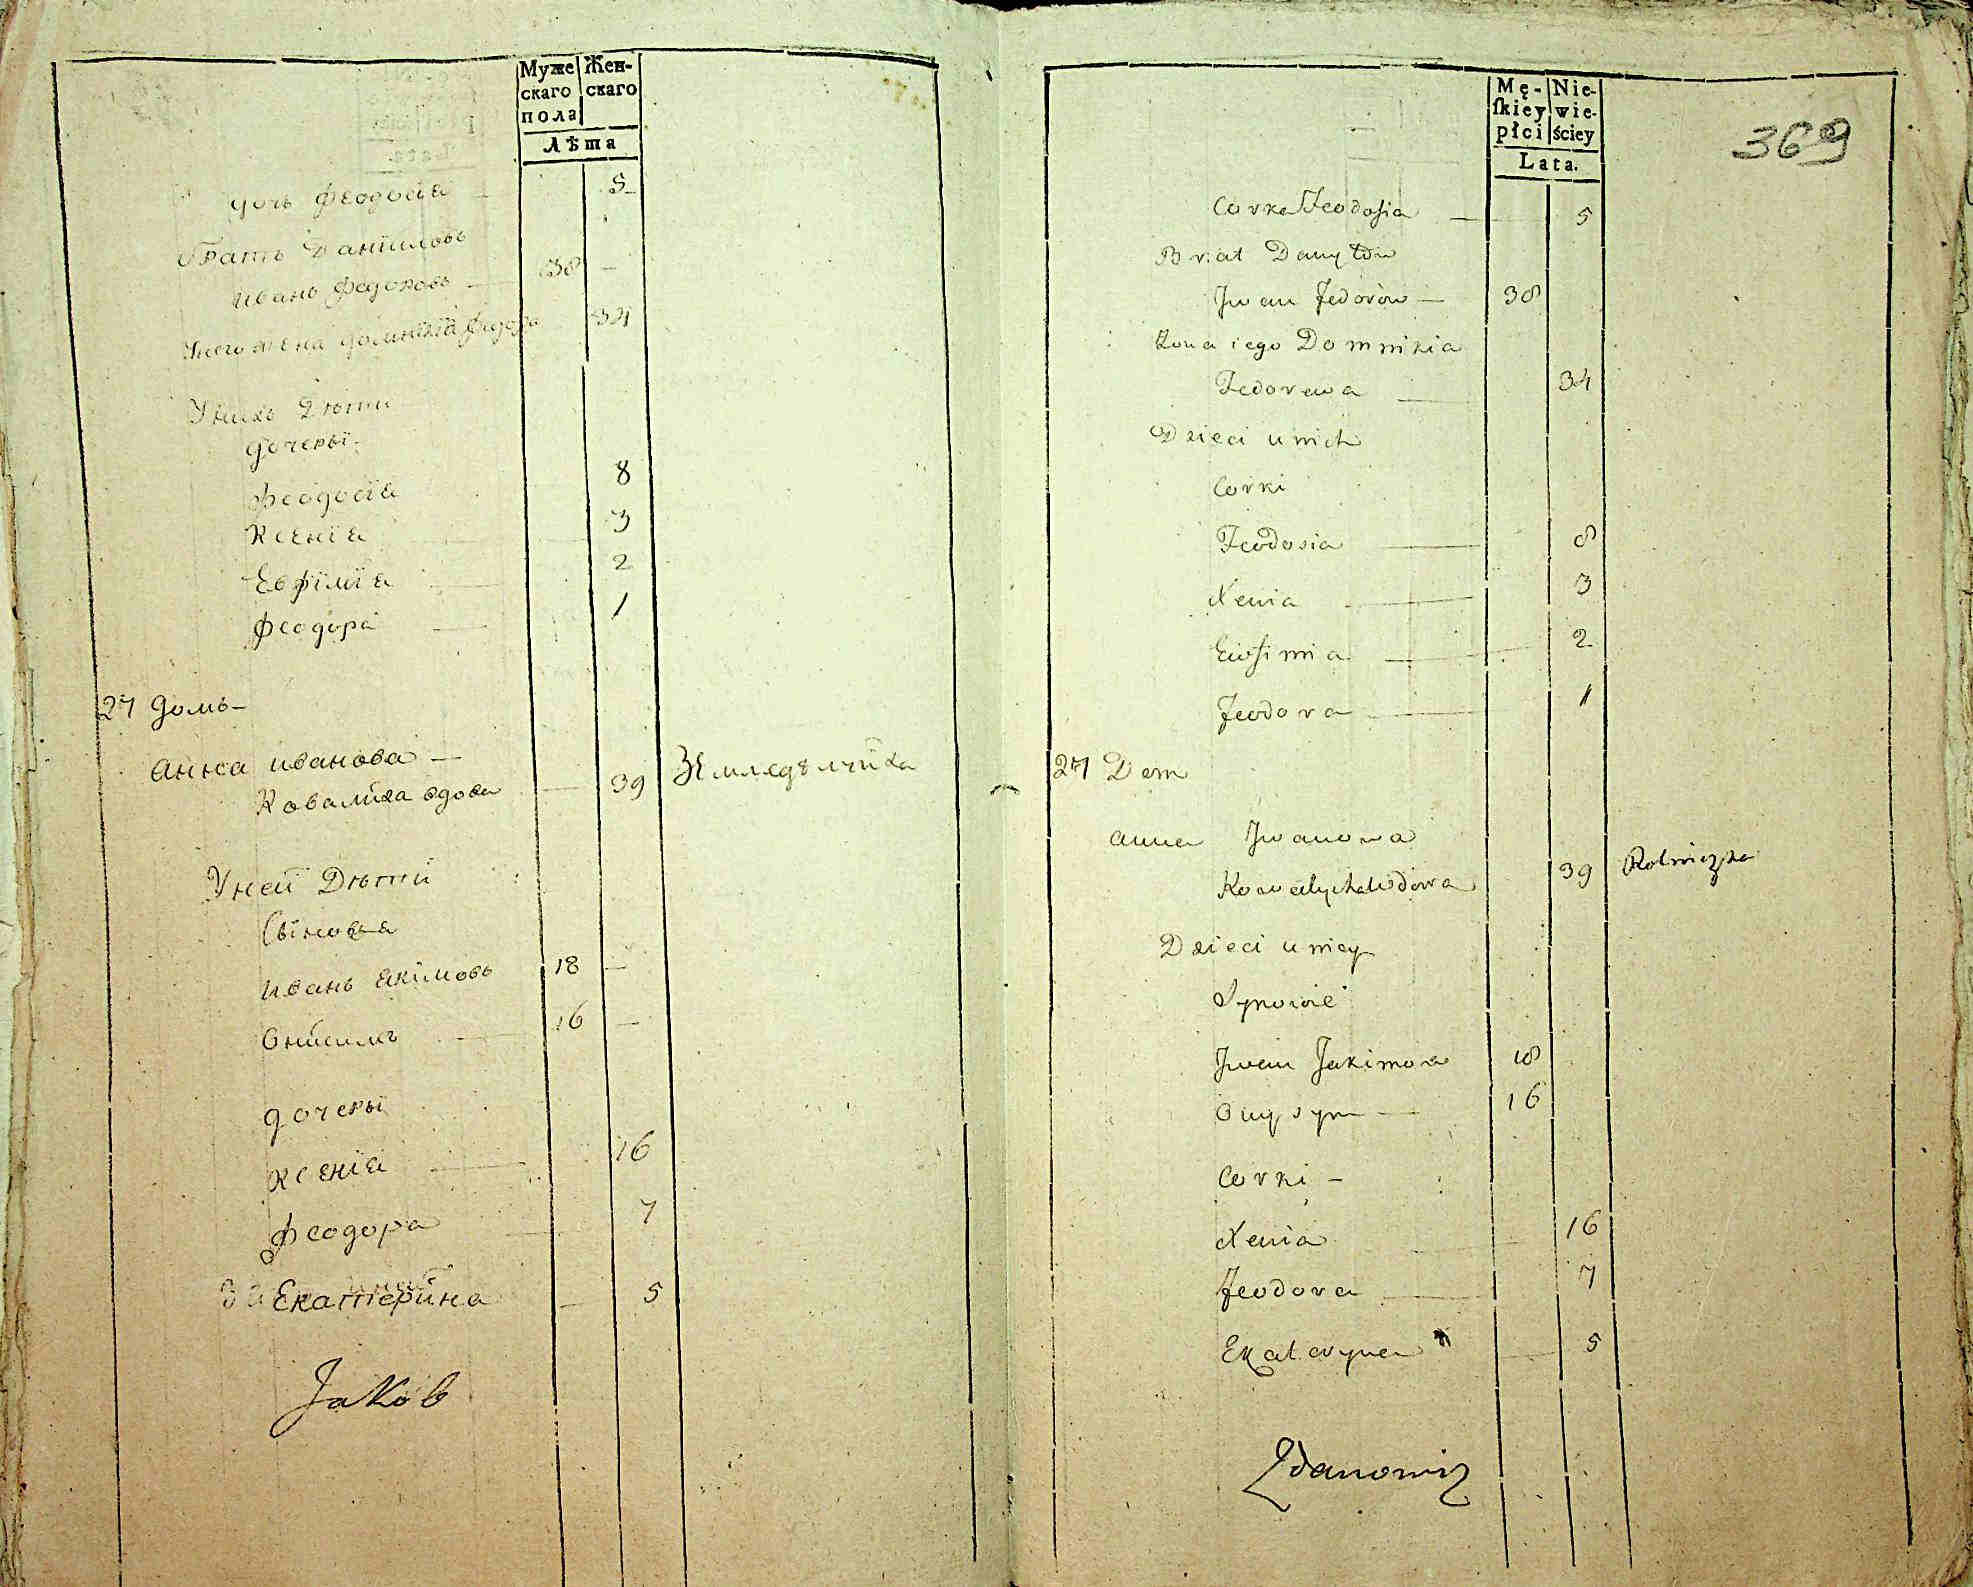 Муже
скаго
пола
Жен-
скаго
Лѣта
дочь Феодосіа 5
Братъ Даніиловъ
Иванъ Федоровъ 38 —
У него жена Домникіа Федора 34
У нихъ Дѣти
дочеры
Феодосіа 8
Ксеніа 3
Евфіміа 2
Феодора 1
27 домъ
Анна Иванова —
Ковалиха вдова 39 Земледѣлчиха
У ней Дѣти
Сыновья
Иванъ Екимовъ 18 —
Онисимъ 16 —
дочеры
Ксеніа 16
Феодора 7
Екатерина 5
Jakób
Mę-
ſkiey
płci
Nie-
wie-
ściey
Lata.
369
Corka Feodosia — 5
Brat Danyłow
Jwan Fedorow — 38
Zona iego Domnikia
Fedorowa 34
Dzieci u nich
Corki
Feodosia 8
Xenia 3
Ewfimia 2
Feodora 1
27 Dom
Anna Jwanowa
Kowalycha wdowa 39 Rolniczka
Dzieci u niey
Synowie
Jwan Jakimow 18
Onysym — 16
Corki —
Xenia 16
Feodora 7
Ekateryna 5
Zdanowicz